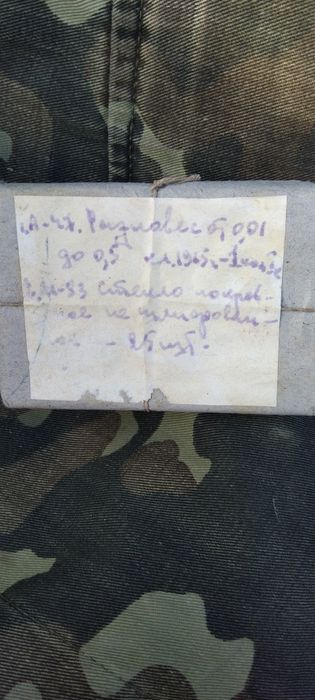 А-47. Разновес от 0,01
до 0,5 1965г - 1 коробк
83 стекло покров-
ное не шлифован-
- 25 шт.